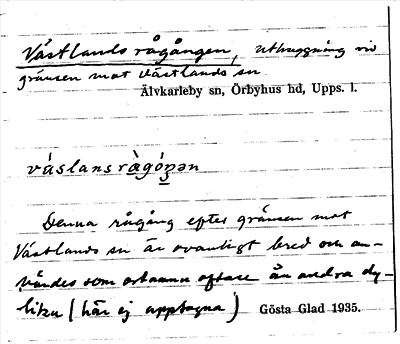 Västlands rågången, uthuggning vid
gränsen mot Västlands sn.
Älvkarleby sn, Örbyhus hd, Upps. l.
váslansràgóŋən
Denna rågång efter gränsen mot
Västlands sn är ovanligt bred och an-
vändes som ortnamn oftare än andra dy-
lika (här ej upptagna)
Gösta Glad 1935.